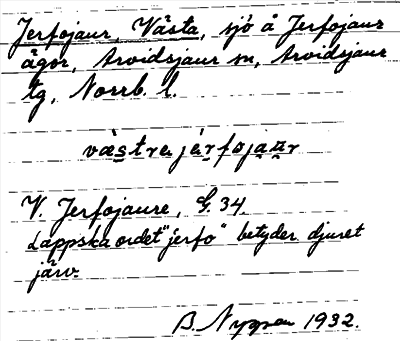 Jerfojaur, Västa, sjö å Jerfojaur
ägor, Arvidsjaur sn, Arvidsjaur
tg, Norrb. l.
västra järfojaur
V. Jerfojaure, G. 34.
Lappska ordet "jerfo" betyder djuret
järv.
B. Nygren 1932.